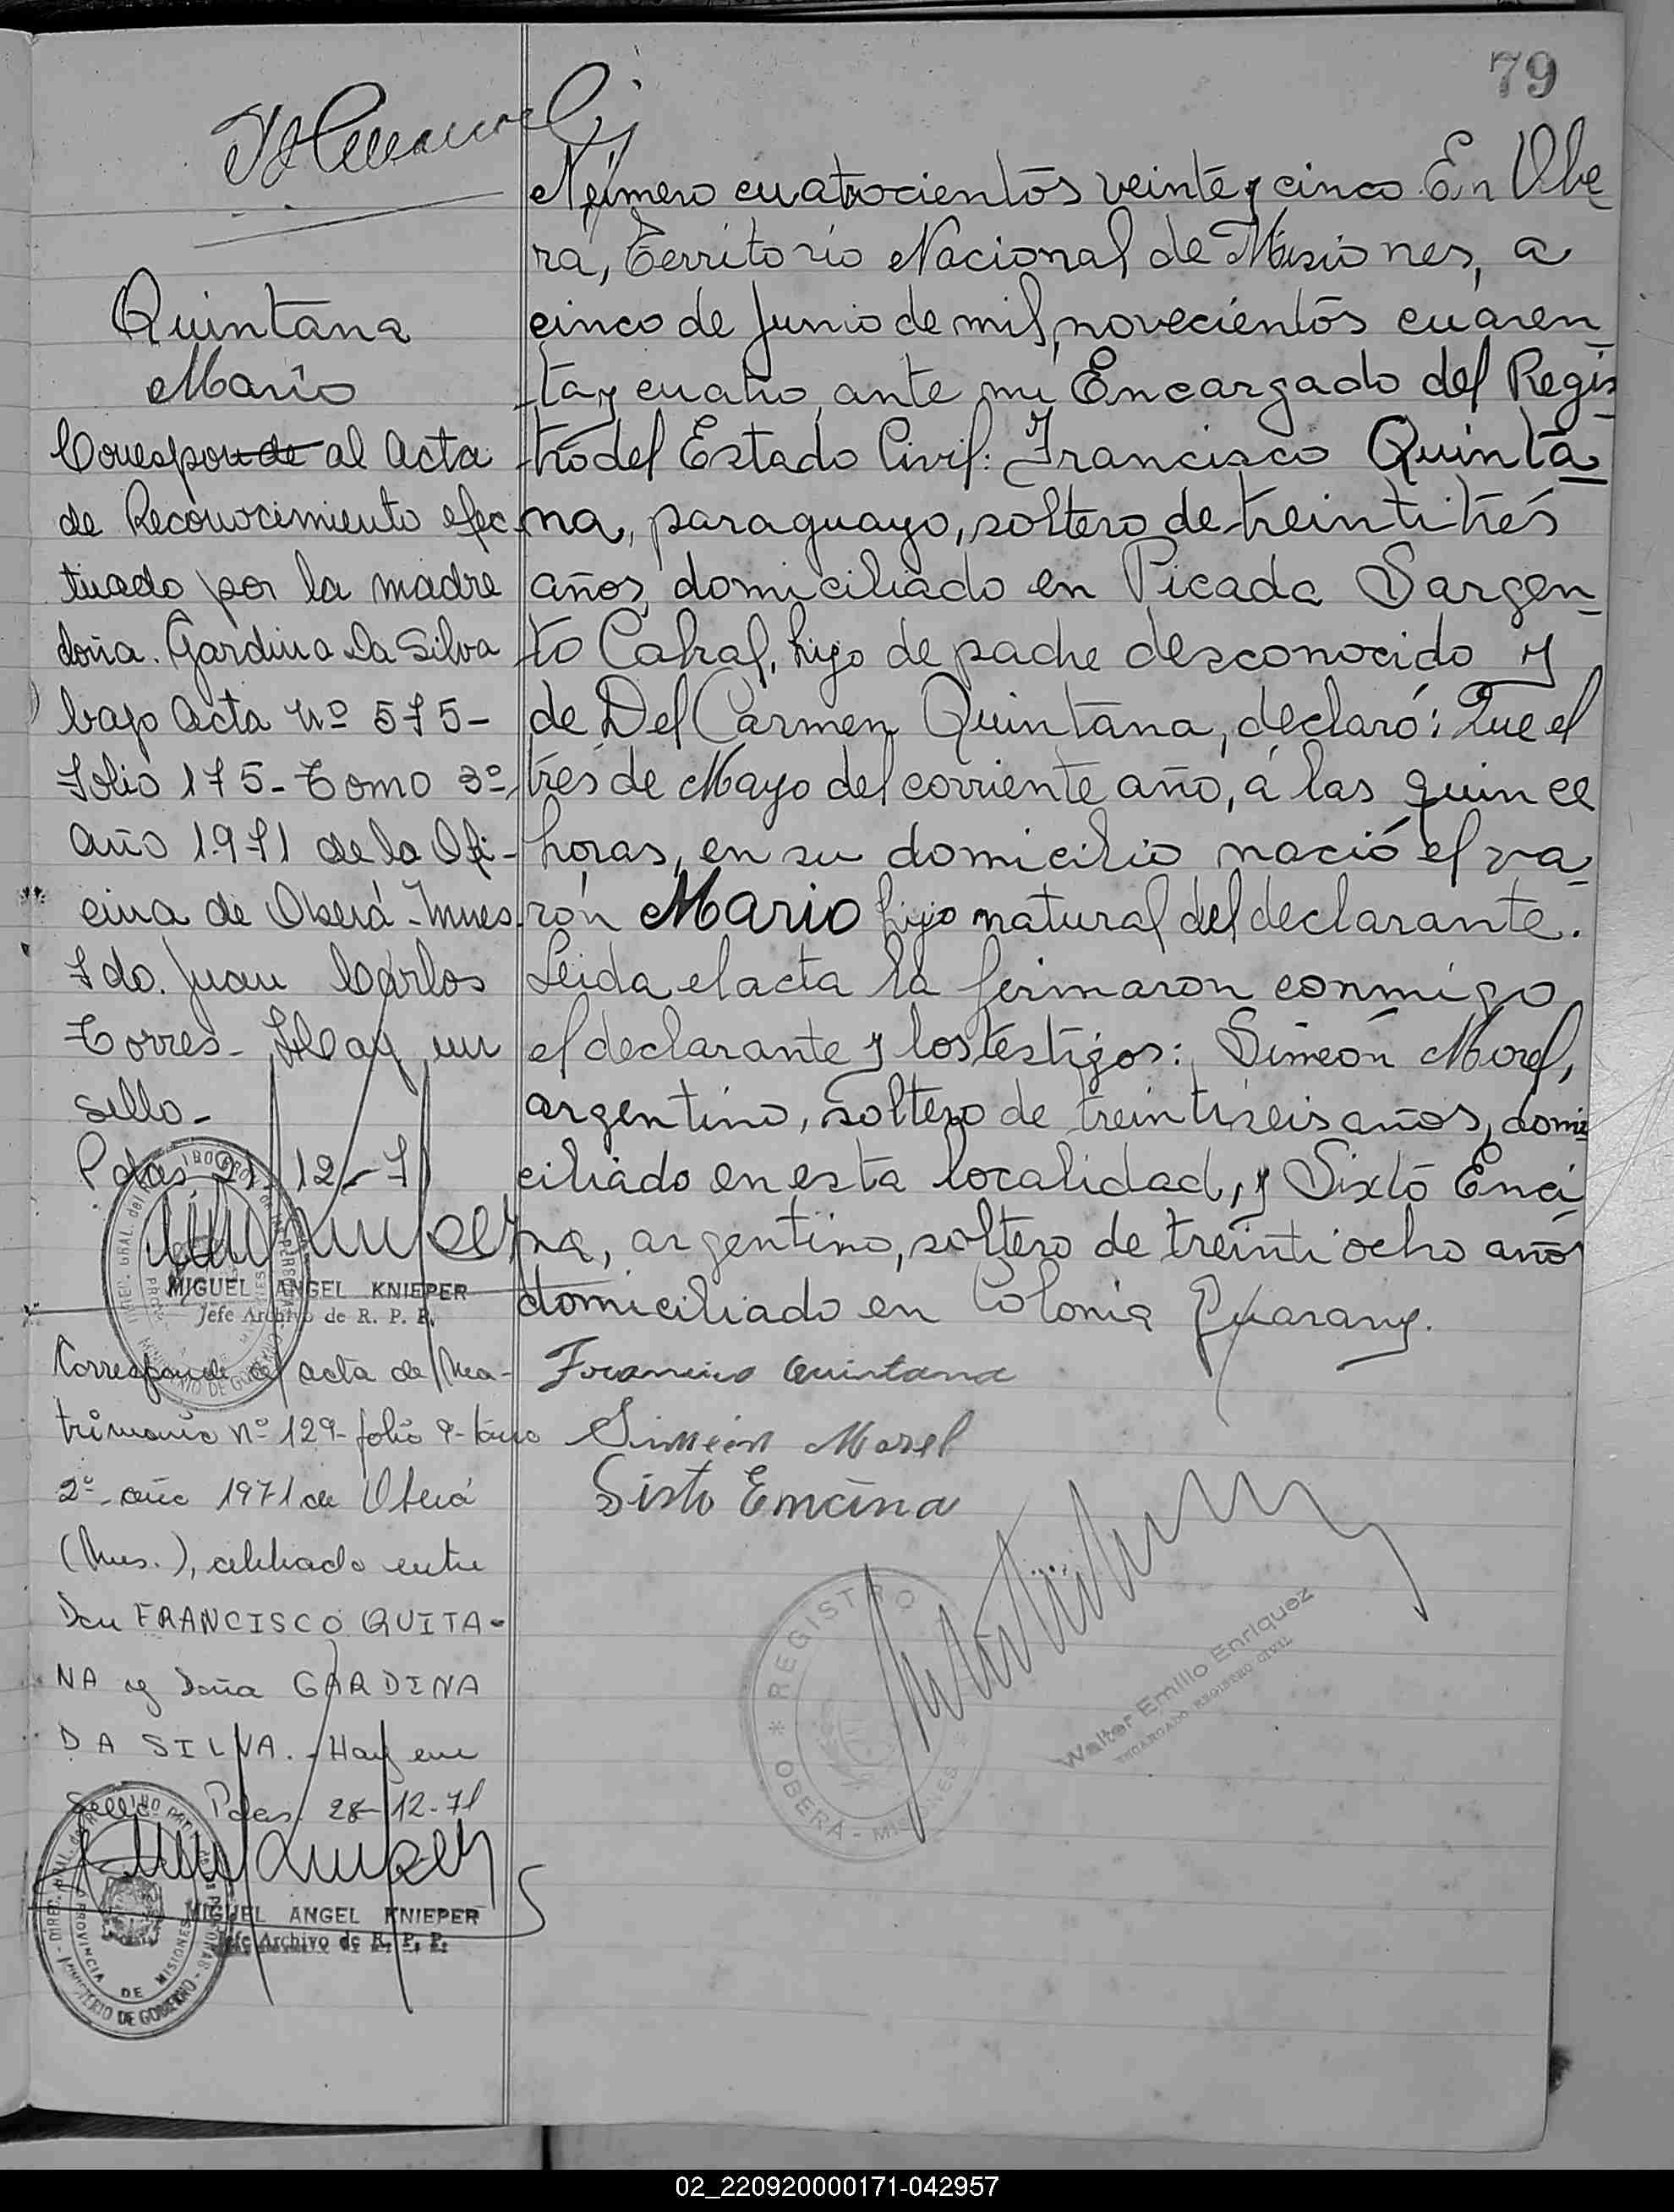 79
Número cuatrocientos veinte y cinco. En Obe
rá, Territorio Nacional de Misiones, a
cinco de Junio de mil novecientos cuaren
ta y cuatro, ante mi Encargado del Regis
tro del Estado Civil: Francisco Quinta
na, paraguayo, soltero de treintitrés
años, domiciliado en Picada Sargen
to Cabral, hijo de padre desconocido y
de Del Carmen Quintana, declaró: Que el
tres de Mayo del corriente año, á las quince
horas, en su domicilio nació el va
rón Mario hijo natural del declarante.
Leida el acta la firmaron conmigo
el declarante y los testigos: Simeón Morel,
argentino, soltero de treintiseis años, domi
ciliado en esta localidad, y Sixto Enci
na, argentino, soltero de treintiocho años
domiciliado en Colonia Guarany.
Francisco Quintana
Simeón Morel
Sisto Encina
REGISTRO
OBERÁ - MISIONES
Walter Emilio Enriquez
ENCARGADO REGISTRO CIVIL
Quintana
Mario
Corresponde al Acta
de Reconocimiento efec
tuado por la madre
doña. Gardina Da Silva
bajo Acta Nº 575-
Folio 175- Tomo 3º
Año 1971 de la Ofi-
cina de Oberá - Mnes.
Fdo. Juan Carlos
Torres- Hay un
sello-
Pdas, 12-71
MIGUEL ANGEL KNIEPER
Jefe Archivo de R. P. P.
Corresponde al acta de Ma-
trimonio nº 129- folio 9- tomo
2º- año 1971 de Oberá
(Mnes.), celebrado entre
Don FRANCISCO QUITA-
NA y Doña GARDINA
DA SILVA.- Hay un
Sello. Pdas. 28-12-71
MIGUEL ANGEL KNIEPER
Jefe Archivo de R. P. P.
PROVINCIA DE MISIONES
MINISTERIO DE GOBIERNO
02_220920000171-042957